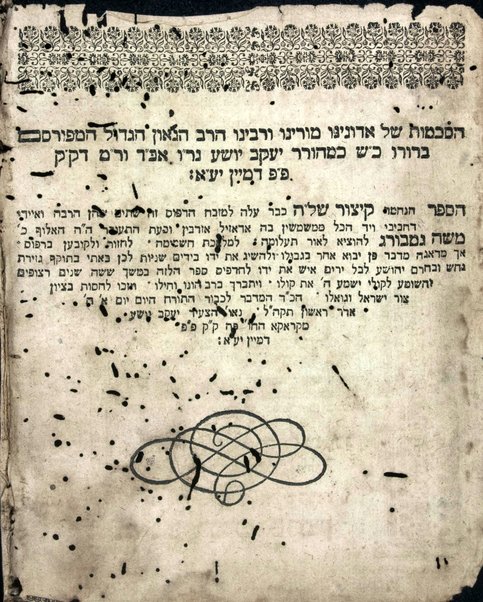 הסכמות של אדונינו מורינו ורבינו הרב הגאון הגדול המפורסם
בדורו כ״ש כמהורר יעקב יושע נר״ו אפ״ד ור״מ דק״ק
פ״פ דמיין יע״א:
הספר הנחמד קיצור של״ה כבר עלה למזבח הדפוס זה שתים
חביבי ויד הכל ממשמשין בה אדאזיל אוזבין וכעת התעורר ה״ה האלוף כ׳
משה להוציא לאור תעלומה למלאכת לחזות ולקובען בדפוס
אך מדאגה מדבר פן יבוא אחר בגבולו ולהשיג את ידו בידים שניות לכן באתי בתוקף גזירת
נחש ובחרם יהושע לבל ירים איש את ידו להדפיס ספר הלזה במשך ששה שנים רצופים
והשומע לקולי ישמע ה׳ את קולו ויתברך ברב הונו וחילו ויזכו לחסות בציון
צור ישראל וגואלו הכ״ד המדבר לכבוד התורה היום יום א׳
אדר ראשון תקה״ל נאו׳ הצעיר יעקב יושע
מקראקא החו׳ פה ק״ק פ״פ
דמיין יע״א: